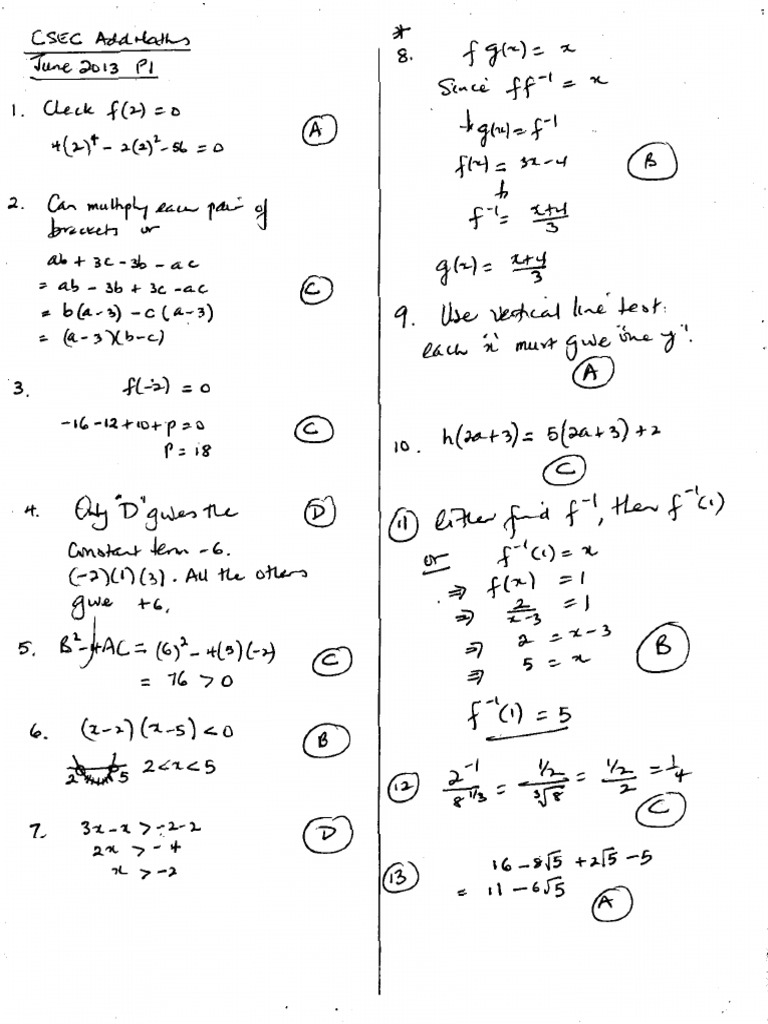 CSEC Add Maths
June 2013 P1
1. Check f(2) = 0
4(2)⁴ - 2(2)² - 56 = 0
A
2. Can multiply each pair of
brackets or
ab + 3c - 3b - ac
= ab - 3b + 3c - ac
C
= b(a-3) - c(a-3)
= (a-3)(b-c)
3. f(-2) = 0
-16 - 12 + 10 + p = 0
C
p = 18
4. Only "D" gives the
D
constant term -6.
(-2)(1)(3). All the others
give +6.
5. B² - 4AC = (6)² - 4(5)(-2)
C
= 76 > 0
6. (x-2)(x-5) < 0
B
2 5 2 < x < 5
7. 3x - x > -2 - 2
D
2x > -4
x > -2
*
8. f g(x) = x
Since ff⁻¹ = x
g(x) = f⁻¹
f(x) = 3x - 4
B
f⁻¹ = x+4/3
g(x) = x+4/3
9. Use vertical line test:
each 'x' must give "one y".
A
10. h(2a+3) = 5(2a+3) + 2
C
11 Either find f⁻¹, then f⁻¹(1)
or f⁻¹(1) = x
⇒ f(x) = 1
⇒ 2/x-3 = 1
⇒ 2 = x - 3
B
⇒ 5 = x
f⁻¹(1) = 5
12 2⁻¹/8^1/3 = 1/2/³√8 = 1/2/2 = 1/4
C
13 16 - 8√5 + 2√5 - 5
= 11 - 6√5
A